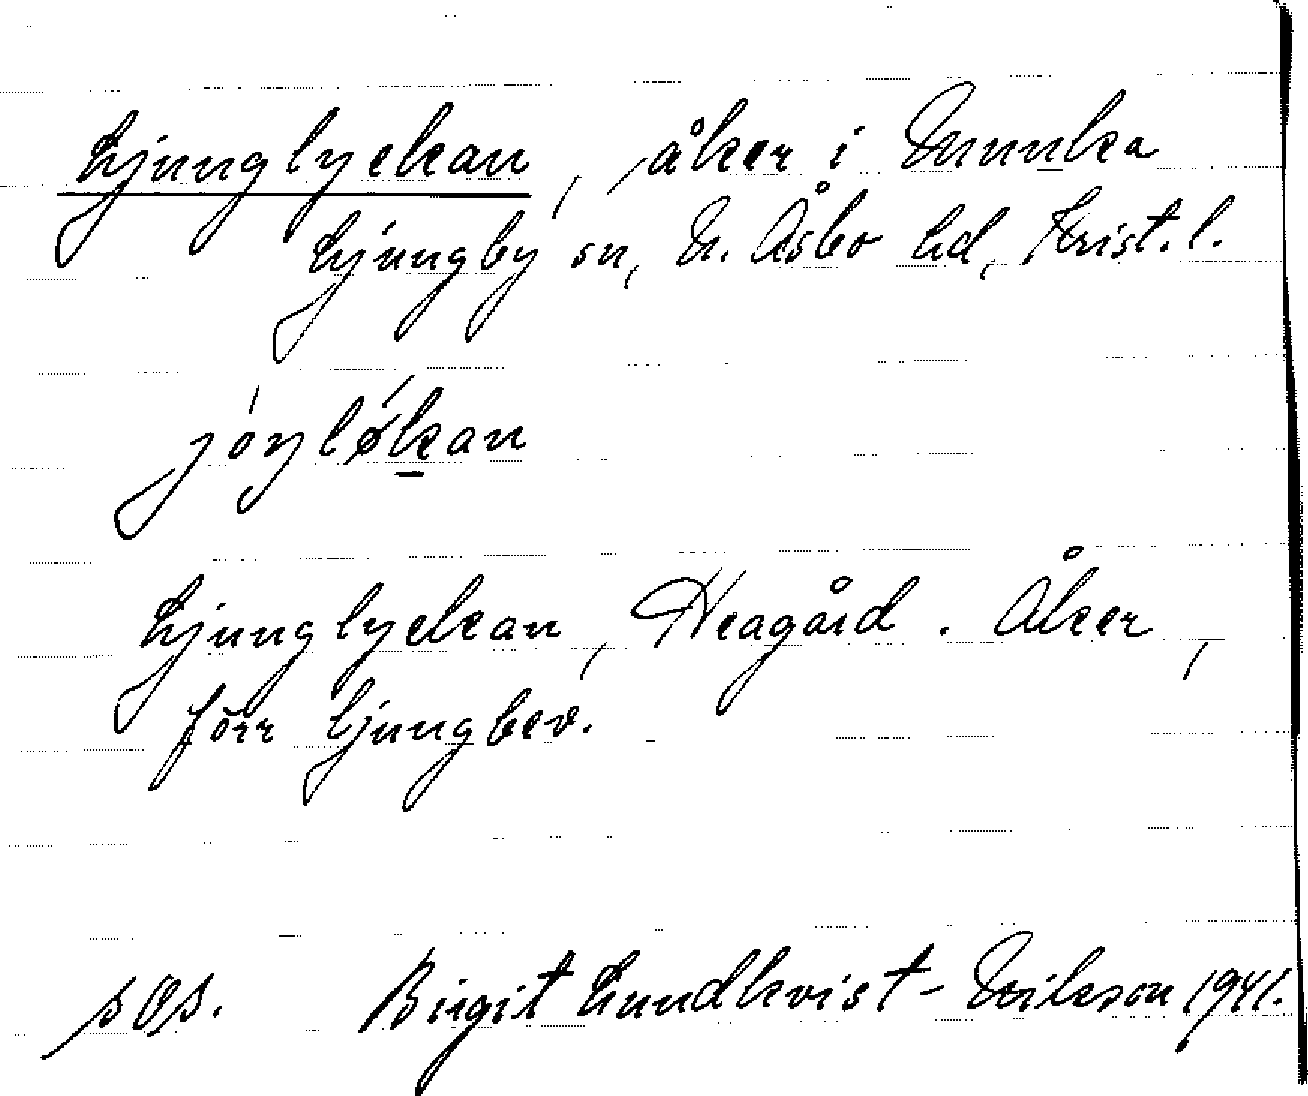 Ljunglyckan, åker i Munka
Ljungby sn, N. Åsbo hd, Krist. l.
jóŋlǿkan
Ljunglyckan, Heagård. Åker,
förr ljungbev.
sOs. Birgit Lundkvist-Nilsson 1941.